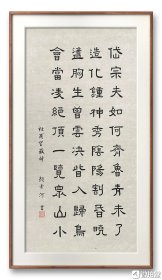 岱宗夫如何齊魯青未了
造化鍾神秀陰陽割昏曉
盪胸生曾雲決眥入歸鳥
會當凌絕頂一覽衆山小
杜甫望嶽詩